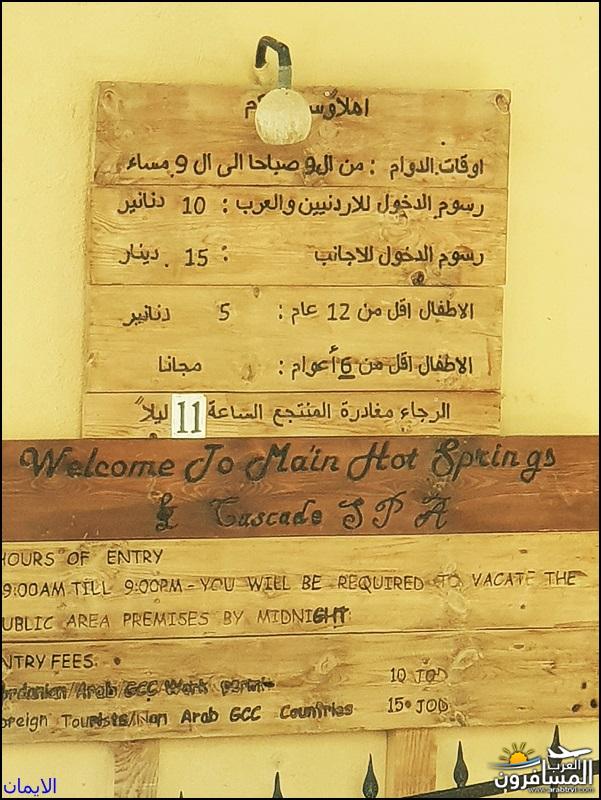 اوقات الدوام : من ال9 صباحا الى ال 9 مساء
رسوم الدخول للاردنيين والعرب : 10 دنانير
رسوم الدخول للاجانب : 15 دينار
الاطفال اقل من 12 عام : 5 دنانير
الاطفال اقل من 6 أعوام : مجانا
الرجاء مغادرة المنتجع الساعة 11 ليلاً
Welcome To Ma'in Hot Springs
& Cascade SPA
HOURS OF ENTRY
9:00AM TILL 9:00PM - YOU WILL BE REQUIRED TO VACATE THE
UBLIC AREA PREMISES BY MIDNIGHT
NTRY FEES
Jordanian/Arab/GCC Work Permit 10 JOD
oreign Tourists/Non Arab GCC Countries 15 JOD
العرب
المسافرون
www.arabtrvl.com
الايمان